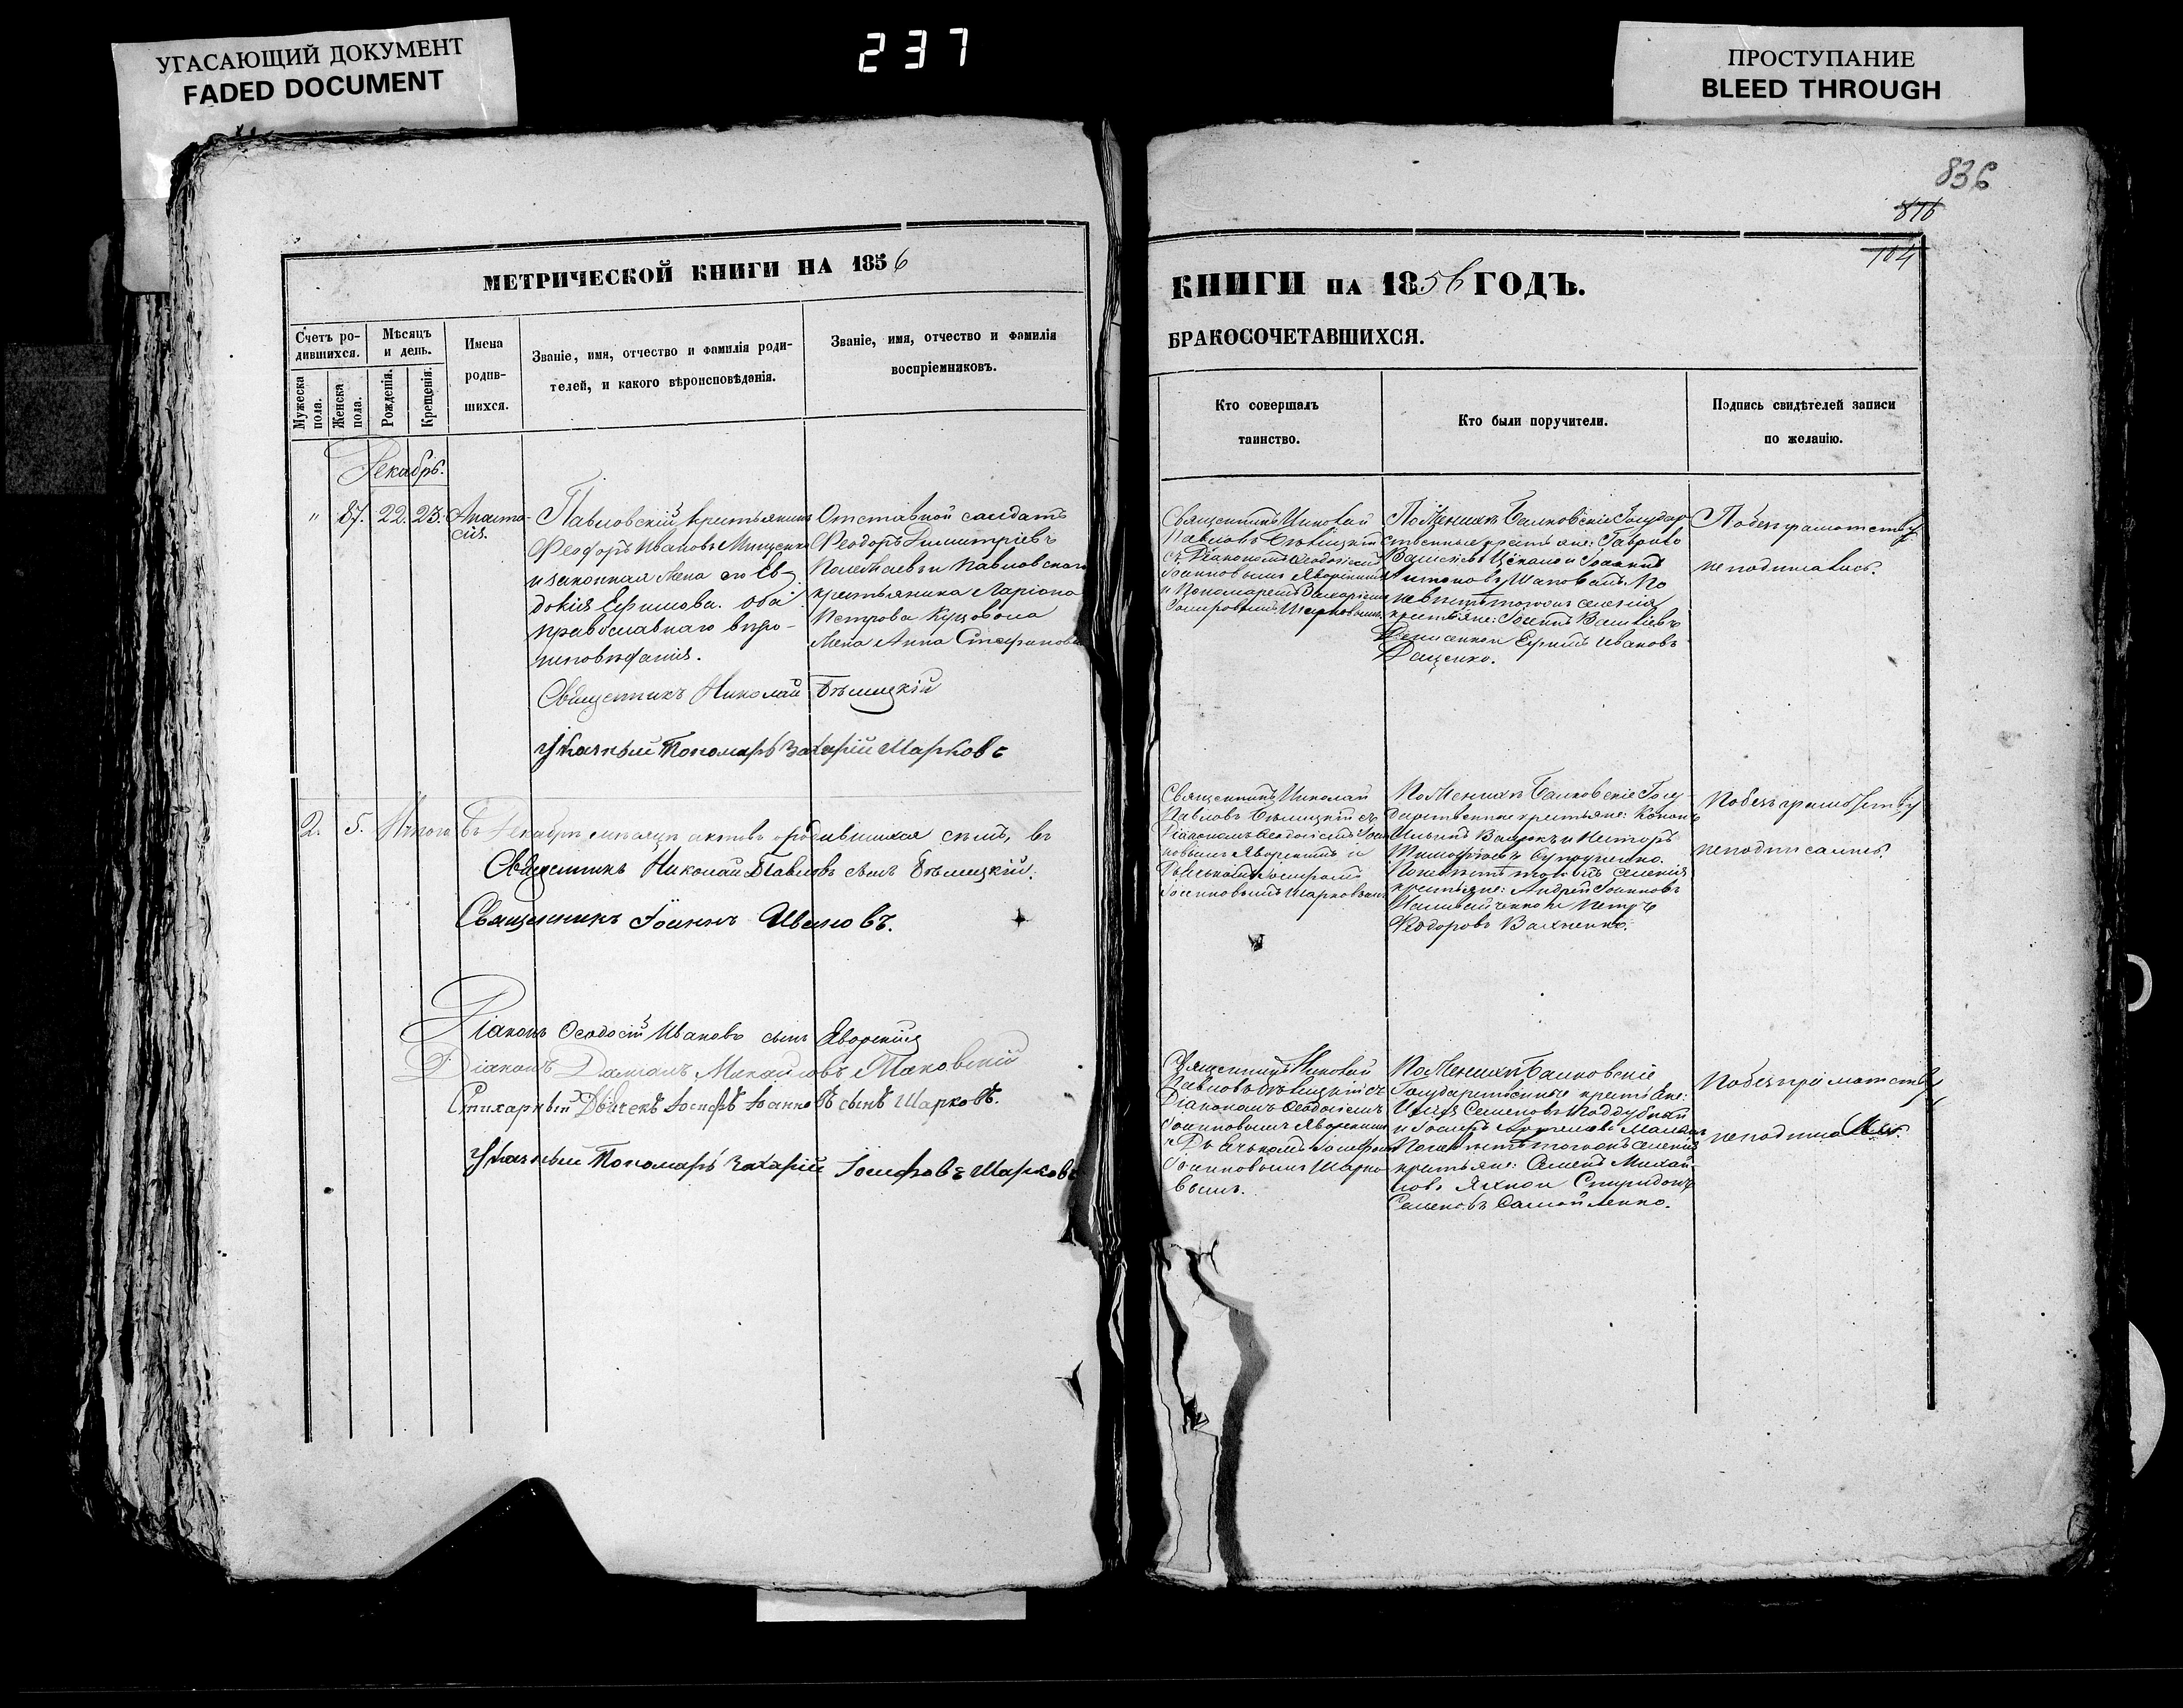 УГАСАЮЩИЙ ДОКУМЕНТ
FADED DOCUMENT
237
ПРОСТУПАНИЕ
BLEED THROUGH
МЕТРИЧЕСКОЙ КНИГИ НА 1856
Счетъ ро-
дившихся.
Мѣсяцъ
и день.
Имена
родив-
шихся.
Званіе, имя, отчество и фамилія роди-
телей, и какого вѣроисповѣданія.
Званіе, имя, отчество и фамилія
воспріемниковъ.
Мужеска
пола.
Женска
пола.
Рожденія.
Крещенія.
Декабрь.
" 87. 22. 23. Анаста-
сія.
Павловскій крестьянинъ
Феодоръ Ивановъ Мищенко
и законная жена его Ев-
докія Ефимова. оба
православнаго вѣро-
исповѣданія.
Отставной солдатъ
Феодоръ Димитріевъ
и Павловскаго
крестьянина Ларіона
Петрова
жена Анна Стефанова
Священникъ Николай Бѣлицкій
Указный Пономарь Захарій Шарковъ
2. 5. Итого въ Декабрѣ мѣсяцѣ актовъ о родившихся семь, въ
Священникъ Николай Павловъ сынъ Бѣлицкій.
Священникъ Іоаннъ Ивановъ.
Діаконъ Феодосій Ивановъ сынъ Яворскій
Діаконъ Даміанъ Михайловъ Маковскій
Стихарный Дьячекъ Іосифъ Іоанновъ сынъ Шарковъ.
Указный Пономарь Захарій Іосифовъ Шарковъ
836
816
164
КНИГИ НА 1856 ГОДЪ.
БРАКОСОЧЕТАВШИХСЯ.
Кто совершалъ
таинство.
Кто были поручители.
Подпись свидѣтелей записи
по желанію.
Священникъ Николай
Павловъ Бѣлицкій
съ Діакономъ Феодосіемъ
Іоанновымъ Яворскимъ
и Пономаремъ Захаріемъ
Іосифовымъ Шарковымъ.
По Женихѣ Балковскіе Государ-
ственные крестьяне: Гаврило
Васильевъ и Іоаннъ
Антоновъ Шаповалъ. По
невѣстѣ того жъ селенія
крестьяне: Іоаннъ Васильевъ
Денисенко и Ефимъ Ивановъ
Даценко.
По безграмотству
не подписались.
Священникъ Николай
Павловъ Бѣлицкій съ
Діакономъ Феодосіемъ Іоан-
новымъ Яворскимъ и
Дьячкомъ Іосифомъ
Іоанновымъ Шарковымъ
По Женихѣ Балковскіе Госу-
дарственные крестьяне: Кононъ
Ильинъ и Несторъ
Тимофѣевъ Супруненко.
По невѣстѣ того жъ селенія
крестьяне: Андрей Іоанновъ
и Петръ
Феодоровъ Вахненко.
По безграмотству
не подписались.
Священникъ Николай
Павловъ Бѣлицкій съ
Діакономъ Феодосіемъ
Іоанновымъ Яворскимъ
и Дьячкомъ Іосифомъ
Іоанновымъ Шарко-
вымъ.
По Женихѣ Балковскіе
Государственные крестьяне:
Илія Семеновъ Поддубный
и Іосифъ
По невѣстѣ того жъ селенія
крестьяне: Семенъ Михай-
ловъ Яхно и Спиридонъ
Семеновъ Самойленко.
По безграмотству
не подписались.